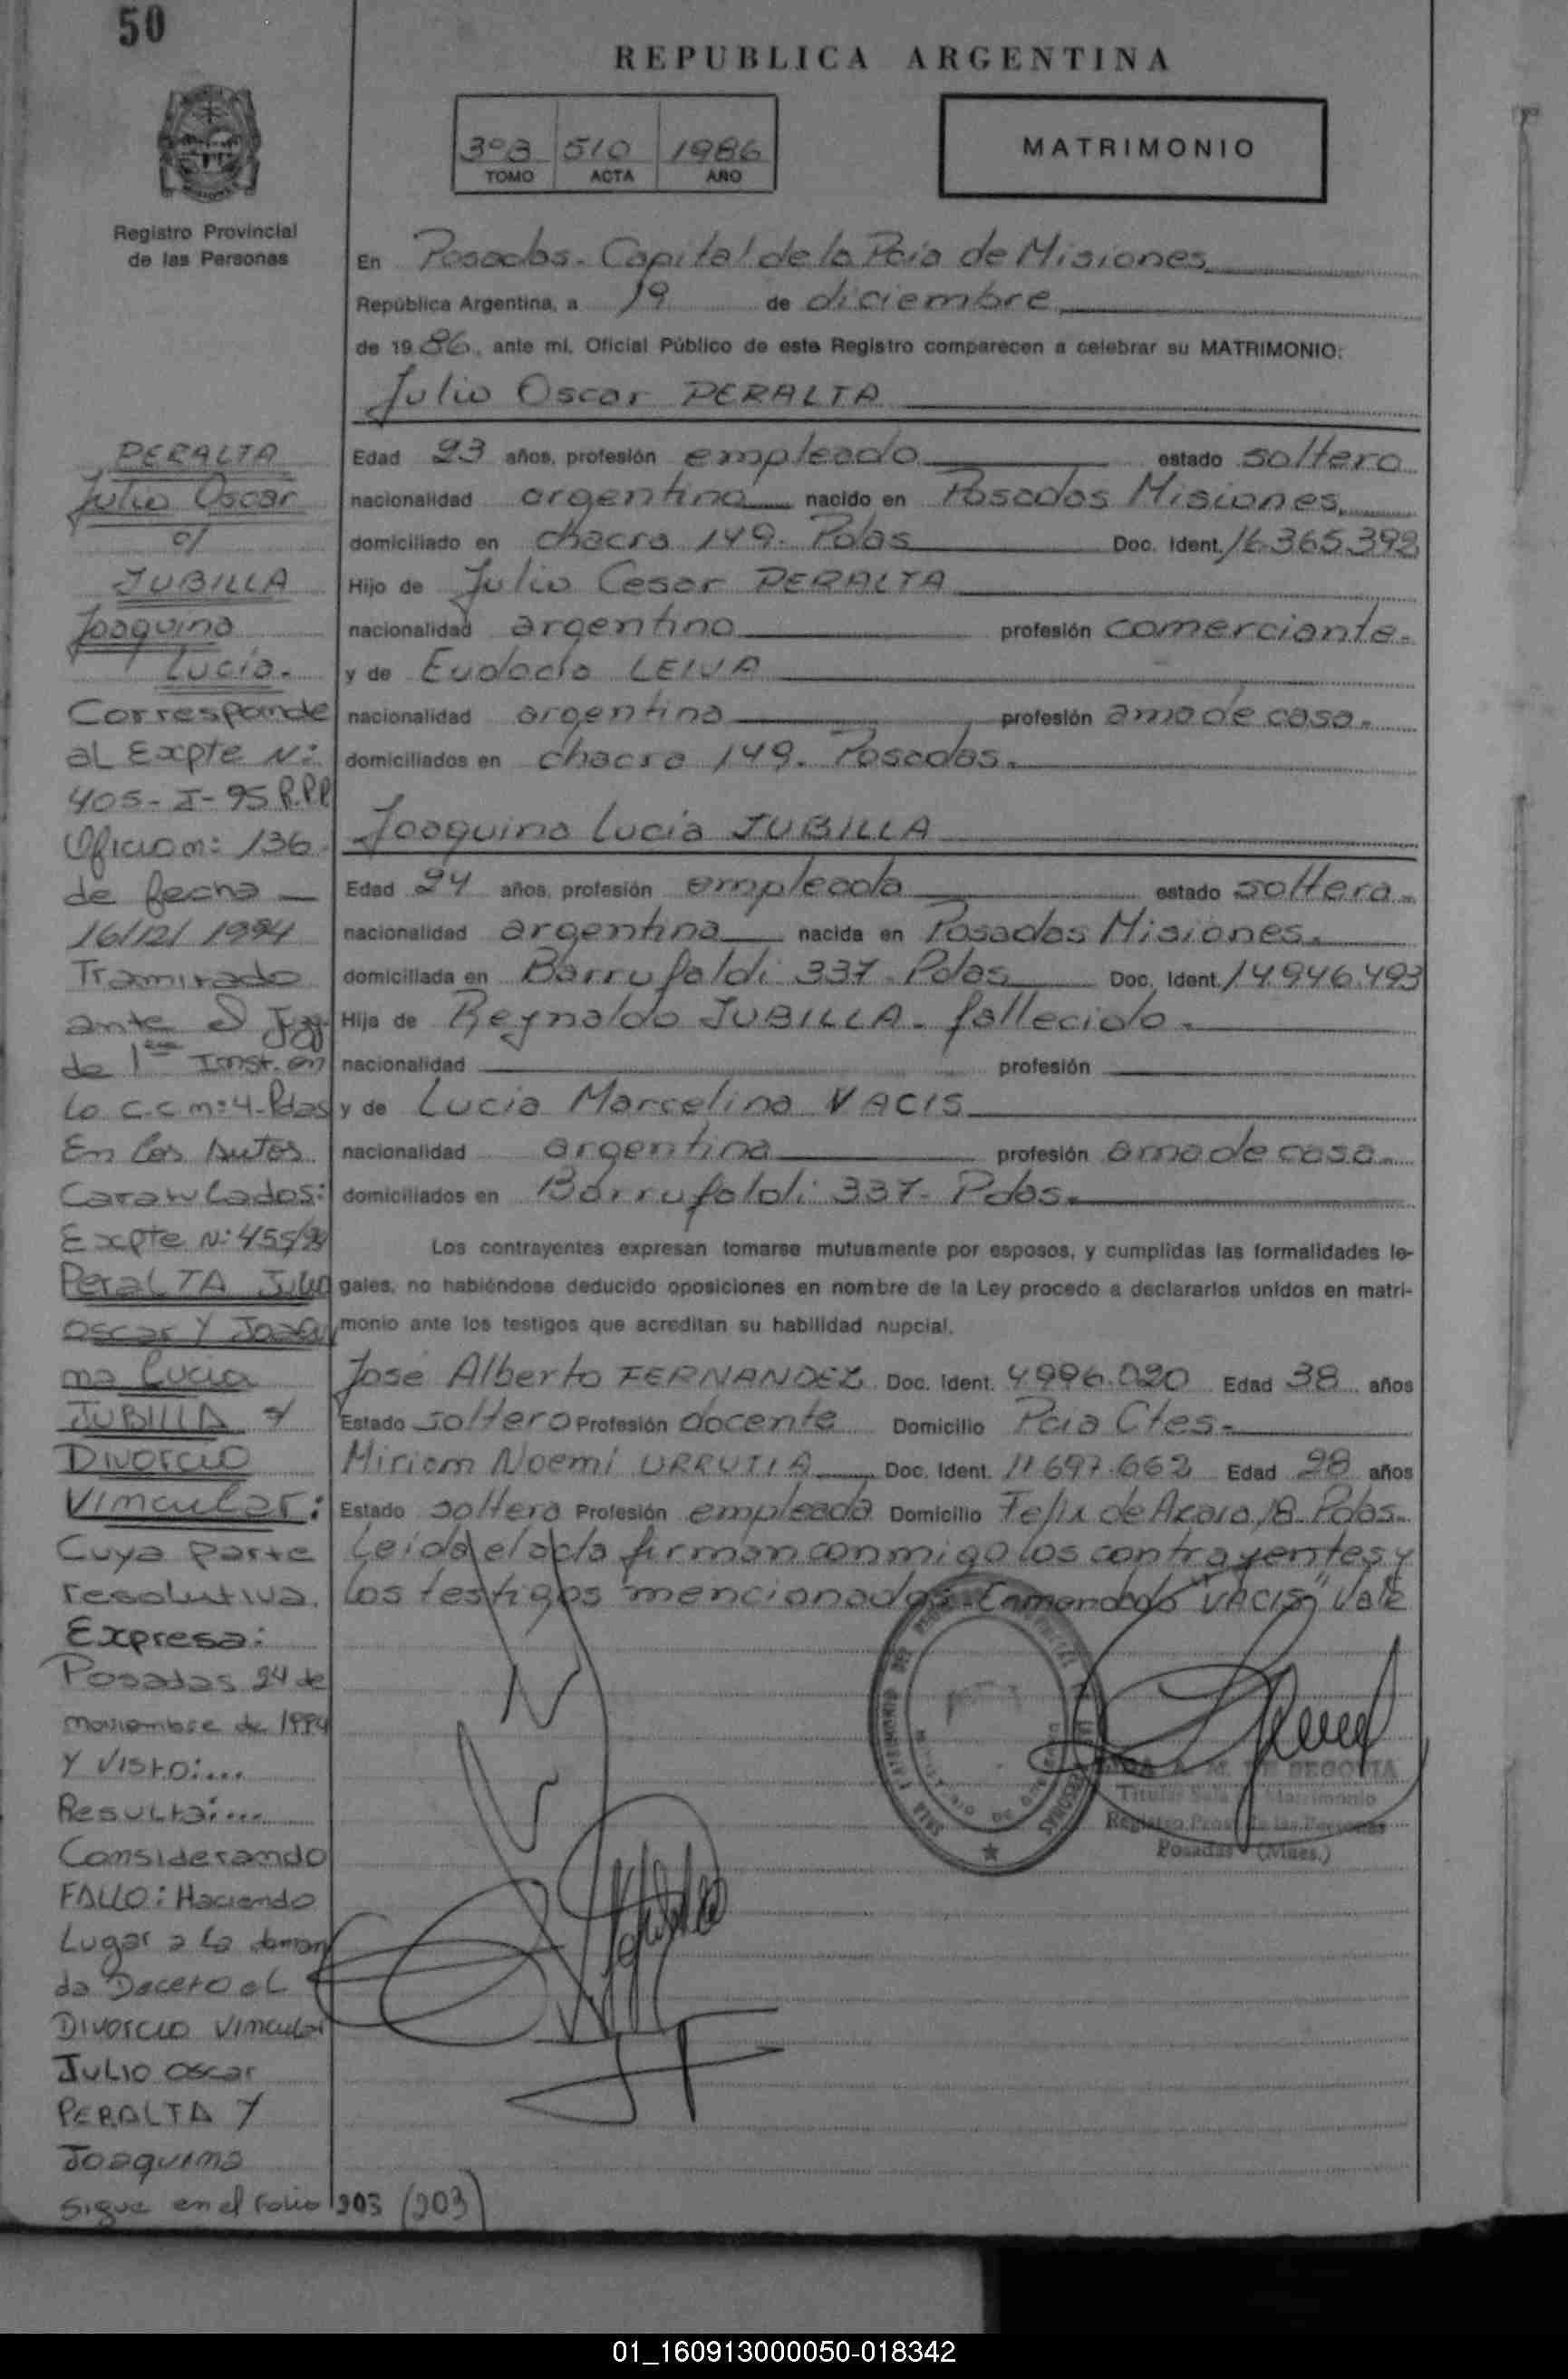 50
REPUBLICA ARGENTINA
3ºB 510 1986
TOMO ACTA AÑO
MATRIMONIO
Registro Provincial
de las Personas
En Posadas. Capital de la Pcia de Misiones
República Argentina, a 19 de diciembre
de 1986, ante mí, Oficial Público de este Registro comparecen a celebrar su MATRIMONIO:
Julio Oscar PERALTA
Edad 23 años, profesión empleado estado soltero
nacionalidad argentina nacido en Posadas Misiones
domiciliado en chacra 149. Pdas Doc. Ident. 16.365.392
Hijo de Julio Cesar PERALTA
nacionalidad argentino profesión comerciante.
y de Eudocia LEIVA
nacionalidad argentina profesión ama de casa.
domiciliados en chacra 149. Posadas.
Joaquina Lucia JUBILLA
Edad 24 años, profesión empleada estado soltera.
nacionalidad argentina nacida en Posadas Misiones.
domiciliada en Barrufaldi 337. Pdas Doc. Ident. 14.946.493
Hija de Reynaldo JUBILLA. fallecido.
nacionalidad profesión
y de Lucia Marcelina VACIS
nacionalidad argentina profesión ama de casa.
domiciliados en Barrufaldi 337. Pdas.
Los contrayentes expresan tomarse mutuamente por esposos, y cumplidas las formalidades le-
gales, no habiéndose deducido oposiciones en nombre de la Ley procedo a declararlos unidos en matri-
monio ante los testigos que acreditan su habilidad nupcial.
José Alberto FERNANDEZ Doc. Ident. 4996.020 Edad 38 años
Estado soltero Profesión docente Domicilio Pcia Ctes.
Miriam Noemí URRUTIA Doc. Ident. 11697.662 Edad 28 años
Estado soltera Profesión empleada Domicilio Felix de Azara 18. Pdas.
Leida el acta firman conmigo los contrayentes y
los testigos mencionados. Enmendado "VACIS" Vale
DE SEGOVIA
Titular Sala de Matrimonio
Registro Prov. de las Personas
Posadas (Mnes.)
PERALTA
Julio Oscar
c/
JUBILLA
Joaquina
Lucía.
Corresponde
al Expte N:
405-I-95 R.P.P
Oficio n: 136
de fecha
16/12/1994
Tramitado
ante el Juzg.
de 1era Inst. en
lo C.C n:4-Pdas
En los Autos
Caratulados:
Expte N: 455/94
PeralTA Julio
Oscar Y Joaqui
na Lucia
JUBILLA s/
Divorcio
Vincular:
Cuya parte
resolutiva
Expresa:
Posadas 24 de
noviembre de 1994
Y Visto:...
Resulta:...
Considerando
FALLO: Haciendo
Lugar a la deman
da Decreto el
Divorcio Vincular
JULIO Oscar
PERALTA Y
Joaquina
sigue en el folio 203 (203)
01_160913000050-018342